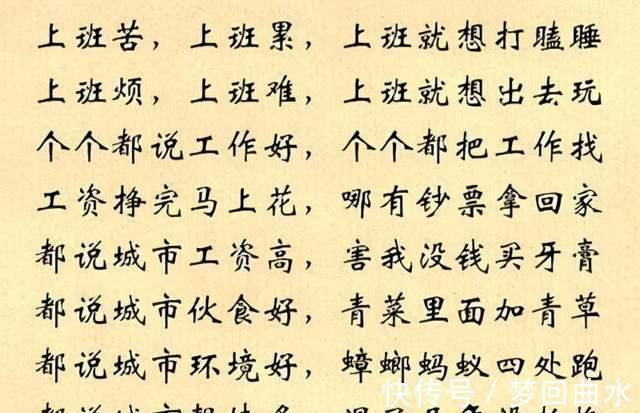 上班苦，上班累，上班就想打瞌睡
上班烦，上班难，上班就想出去玩
个个都说工作好，个个都把工作找
工资挣完马上花，哪有钞票拿回家
都说城市工资高，害我没钱买牙膏
都说城市伙食好，青菜里面加青草
都说城市环境好，蟑螂蚂蚁四处跑
快传号 / 梦回曲水